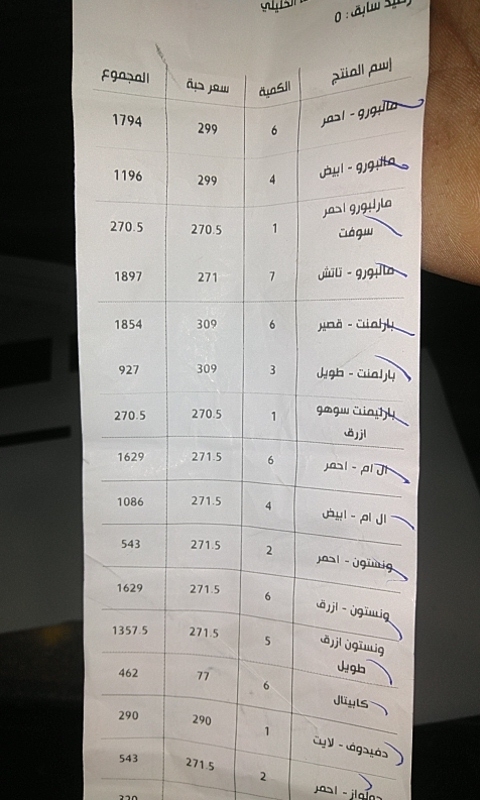 الخليلي
رصيد سابق: 0
إسم المنتج الكمية سعر حبة المجموع
مالبورو - احمر 6 299 1794
مالبورو - ابيض 4 299 1196
مارلبورو احمر
سوفت 1 270.5 270.5
مالبورو - تاتش 7 271 1897
بارلمنت - قصير 6 309 1854
بارلمنت - طويل 3 309 927
بارليمنت سوهو
ازرق 1 270.5 270.5
ال ام - احمر 6 271.5 1629
ال ام - ابيض 4 271.5 1086
ونستون - احمر 2 271.5 543
ونستون - ازرق 6 271.5 1629
ونستون ازرق
طويل 5 271.5 1357.5
كابيتال 6 77 462
دفيدوف - لايت 1 290 290
جولواز - احمر 2 271.5 543
320